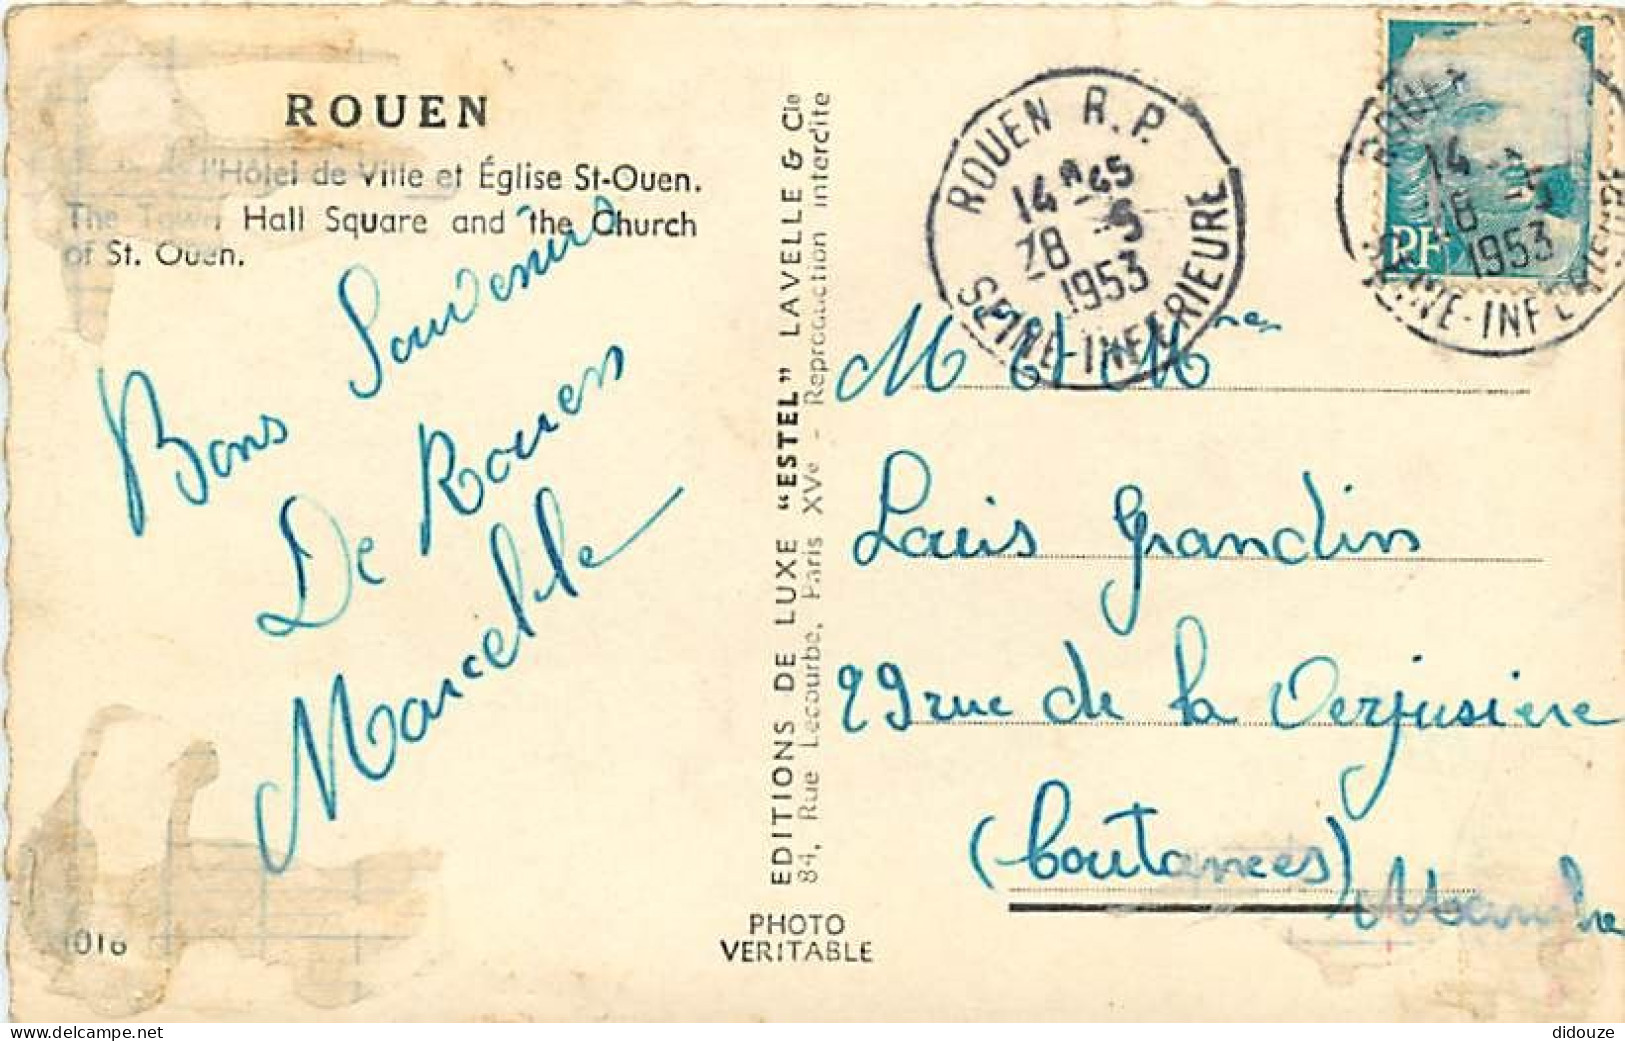 ROUEN
l'Hôtel de Ville et Église St-Ouen.
The Town Hall Square and the Church
of St. Ouen.
Bons Souvenirs
De Rouen
Marcelle
1016
EDITIONS DE LUXE "ESTEL" LAVELLE & Cie
84, Rue Lecourbe, Paris XVe - Reproduction interdite
PHOTO
VERITABLE
ROUEN R.P.
14H45
28-5
1953
SEINE-INFERIEURE
RF
ROUEN
14
1953
SEINE-INFERIEURE
M et Mme
Louis Grandin
29 rue de la Verjusière
(Coutances)
Manche
www.delcampe.net
didouze